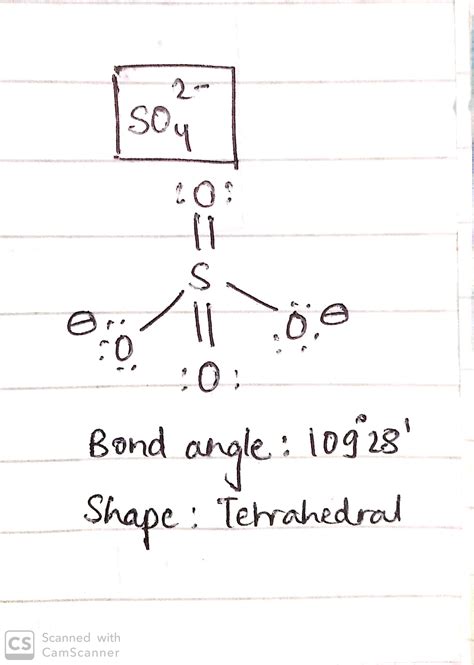 SO₄²⁻
:O:
||
S
⊖ :O: :O: ⊖
||
:O:
Bond angle : 109°28'
Shape : Tetrahedral
CS Scanned with
CamScanner